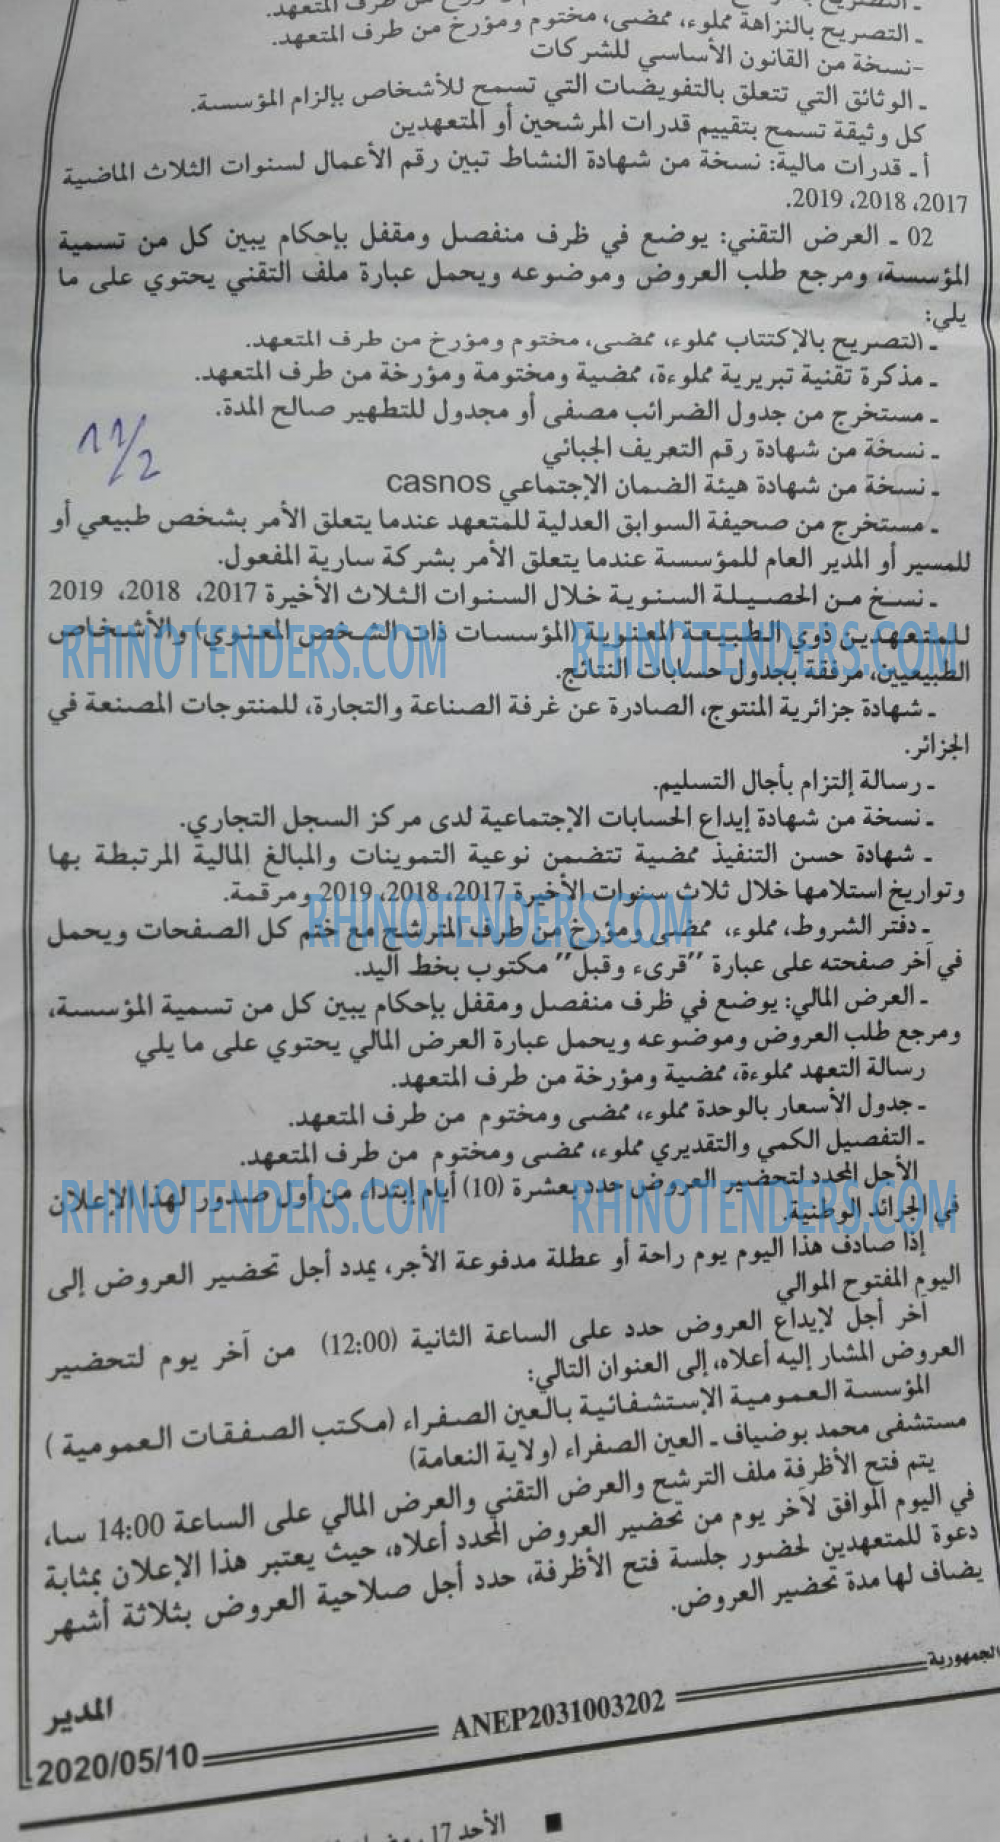 ـ التصريح بالنزاهة مملوء، ممضى، مختوم ومؤرخ من طرف المتعهد.
-نسخة من القانون الأساسي للشركات
ـ الوثائق التي تتعلق بالتفويضات التي تسمح للأشخاص بإلزام المؤسسة.
كل وثيقة تسمح بتقييم قدرات المرشحين أو المتعهدين
أ ـ قدرات مالية: نسخة من شهادة النشاط تبين رقم الأعمال لسنوات الثلاث الماضية
2017، 2018، 2019.
02 ـ العرض التقني: يوضع في ظرف منفصل ومقفل بإحكام يبين كل من تسمية
المؤسسة، ومرجع طلب العروض وموضوعه ويحمل عبارة ملف التقني يحتوي على ما
يلي:
ـ التصريح بالإكتتاب مملوء، ممضى، مختوم ومؤرخ من طرف المتعهد.
ـ مذكرة تقنية تبريرية مملوءة، ممضية ومختومة ومؤرخة من طرف المتعهد.
ـ مستخرج من جدول الضرائب مصفى أو مجدول للتطهير صالح المدة.
11/2
ـ نسخة من شهادة رقم التعريف الجبائي
ـ نسخة من شهادة هيئة الضمان الإجتماعي casnos
ـ مستخرج من صحيفة السوابق العدلية للمتعهد عندما يتعلق الأمر بشخص طبيعي أو
للمسير أو المدير العام للمؤسسة عندما يتعلق الأمر بشركة سارية المفعول.
ـ نسخ من الحصيلة السنوية خلال السنوات الثلاث الأخيرة 2017، 2018، 2019
للمتعهدين ذوي الطبيعة المعنوية (المؤسسات ذات الشخص المعنوي) والأشخاص
RHINOTENDERS.COM RHINOTENDERS.COM
الطبيعيين، مرفقة بجدول حسابات النتائج.
ـ شهادة جزائرية المنتوج، الصادرة عن غرفة الصناعة والتجارة، للمنتوجات المصنعة في
الجزائر.
ـ رسالة إلتزام بأجال التسليم.
ـ نسخة من شهادة إيداع الحسابات الإجتماعية لدى مركز السجل التجاري.
ـ شهادة حسن التنفيذ ممضية تتضمن نوعية التموينات والمبالغ المالية المرتبطة بها
وتواريخ استلامها خلال ثلاث سنوات الأخيرة 2017، 2018، 2019 ومرقمة.
RHINOTENDERS.COM
ـ دفتر الشروط، مملوء، ممضى ومؤرخ من طرف المترشح مع ختم كل الصفحات ويحمل
في آخر صفحته على عبارة "قرىء وقبل" مكتوب بخط اليد.
ـ العرض المالي: يوضع في ظرف منفصل ومقفل بإحكام يبين كل من تسمية المؤسسة،
ومرجع طلب العروض وموضوعه ويحمل عبارة العرض المالي يحتوي على ما يلي
رسالة التعهد مملوءة، ممضية ومؤرخة من طرف المتعهد.
ـ جدول الأسعار بالوحدة مملوء، ممضى ومختوم من طرف المتعهد.
ـ التفصيل الكمي والتقديري مملوء، ممضى ومختوم من طرف المتعهد.
الأجل المحدد لتحضير العروض حدد بعشرة (10) أيام إبتداء من أول صدور لهذا الإعلان
RHINOTENDERS.COM RHINOTENDERS.COM
في الجرائد الوطنية.
إذا صادف هذا اليوم يوم راحة أو عطلة مدفوعة الأجر، يمدد أجل تحضير العروض إلى
اليوم المفتوح الموالي
آخر أجل لإيداع العروض حدد على الساعة الثانية (12:00) من آخر يوم لتحضير
العروض المشار إليه أعلاه، إلى العنوان التالي:
المؤسسة العمومية الإستشفائية بالعين الصفراء (مكتب الصفقات العمومية )
مستشفى محمد بوضياف ـ العين الصفراء (ولاية النعامة)
يتم فتح الأظرفة ملف الترشح والعرض التقني والعرض المالي على الساعة 14:00 سا،
في اليوم الموافق لآخر يوم من تحضير العروض المحدد أعلاه، حيث يعتبر هذا الإعلان بمثابة
دعوة للمتعهدين لحضور جلسة فتح الأظرفة، حدد أجل صلاحية العروض بثلاثة أشهر
يضاف لها مدة تحضير العروض.
المدير
الجمهورية
ANEP2031003202
2020/05/10
الأحد 17